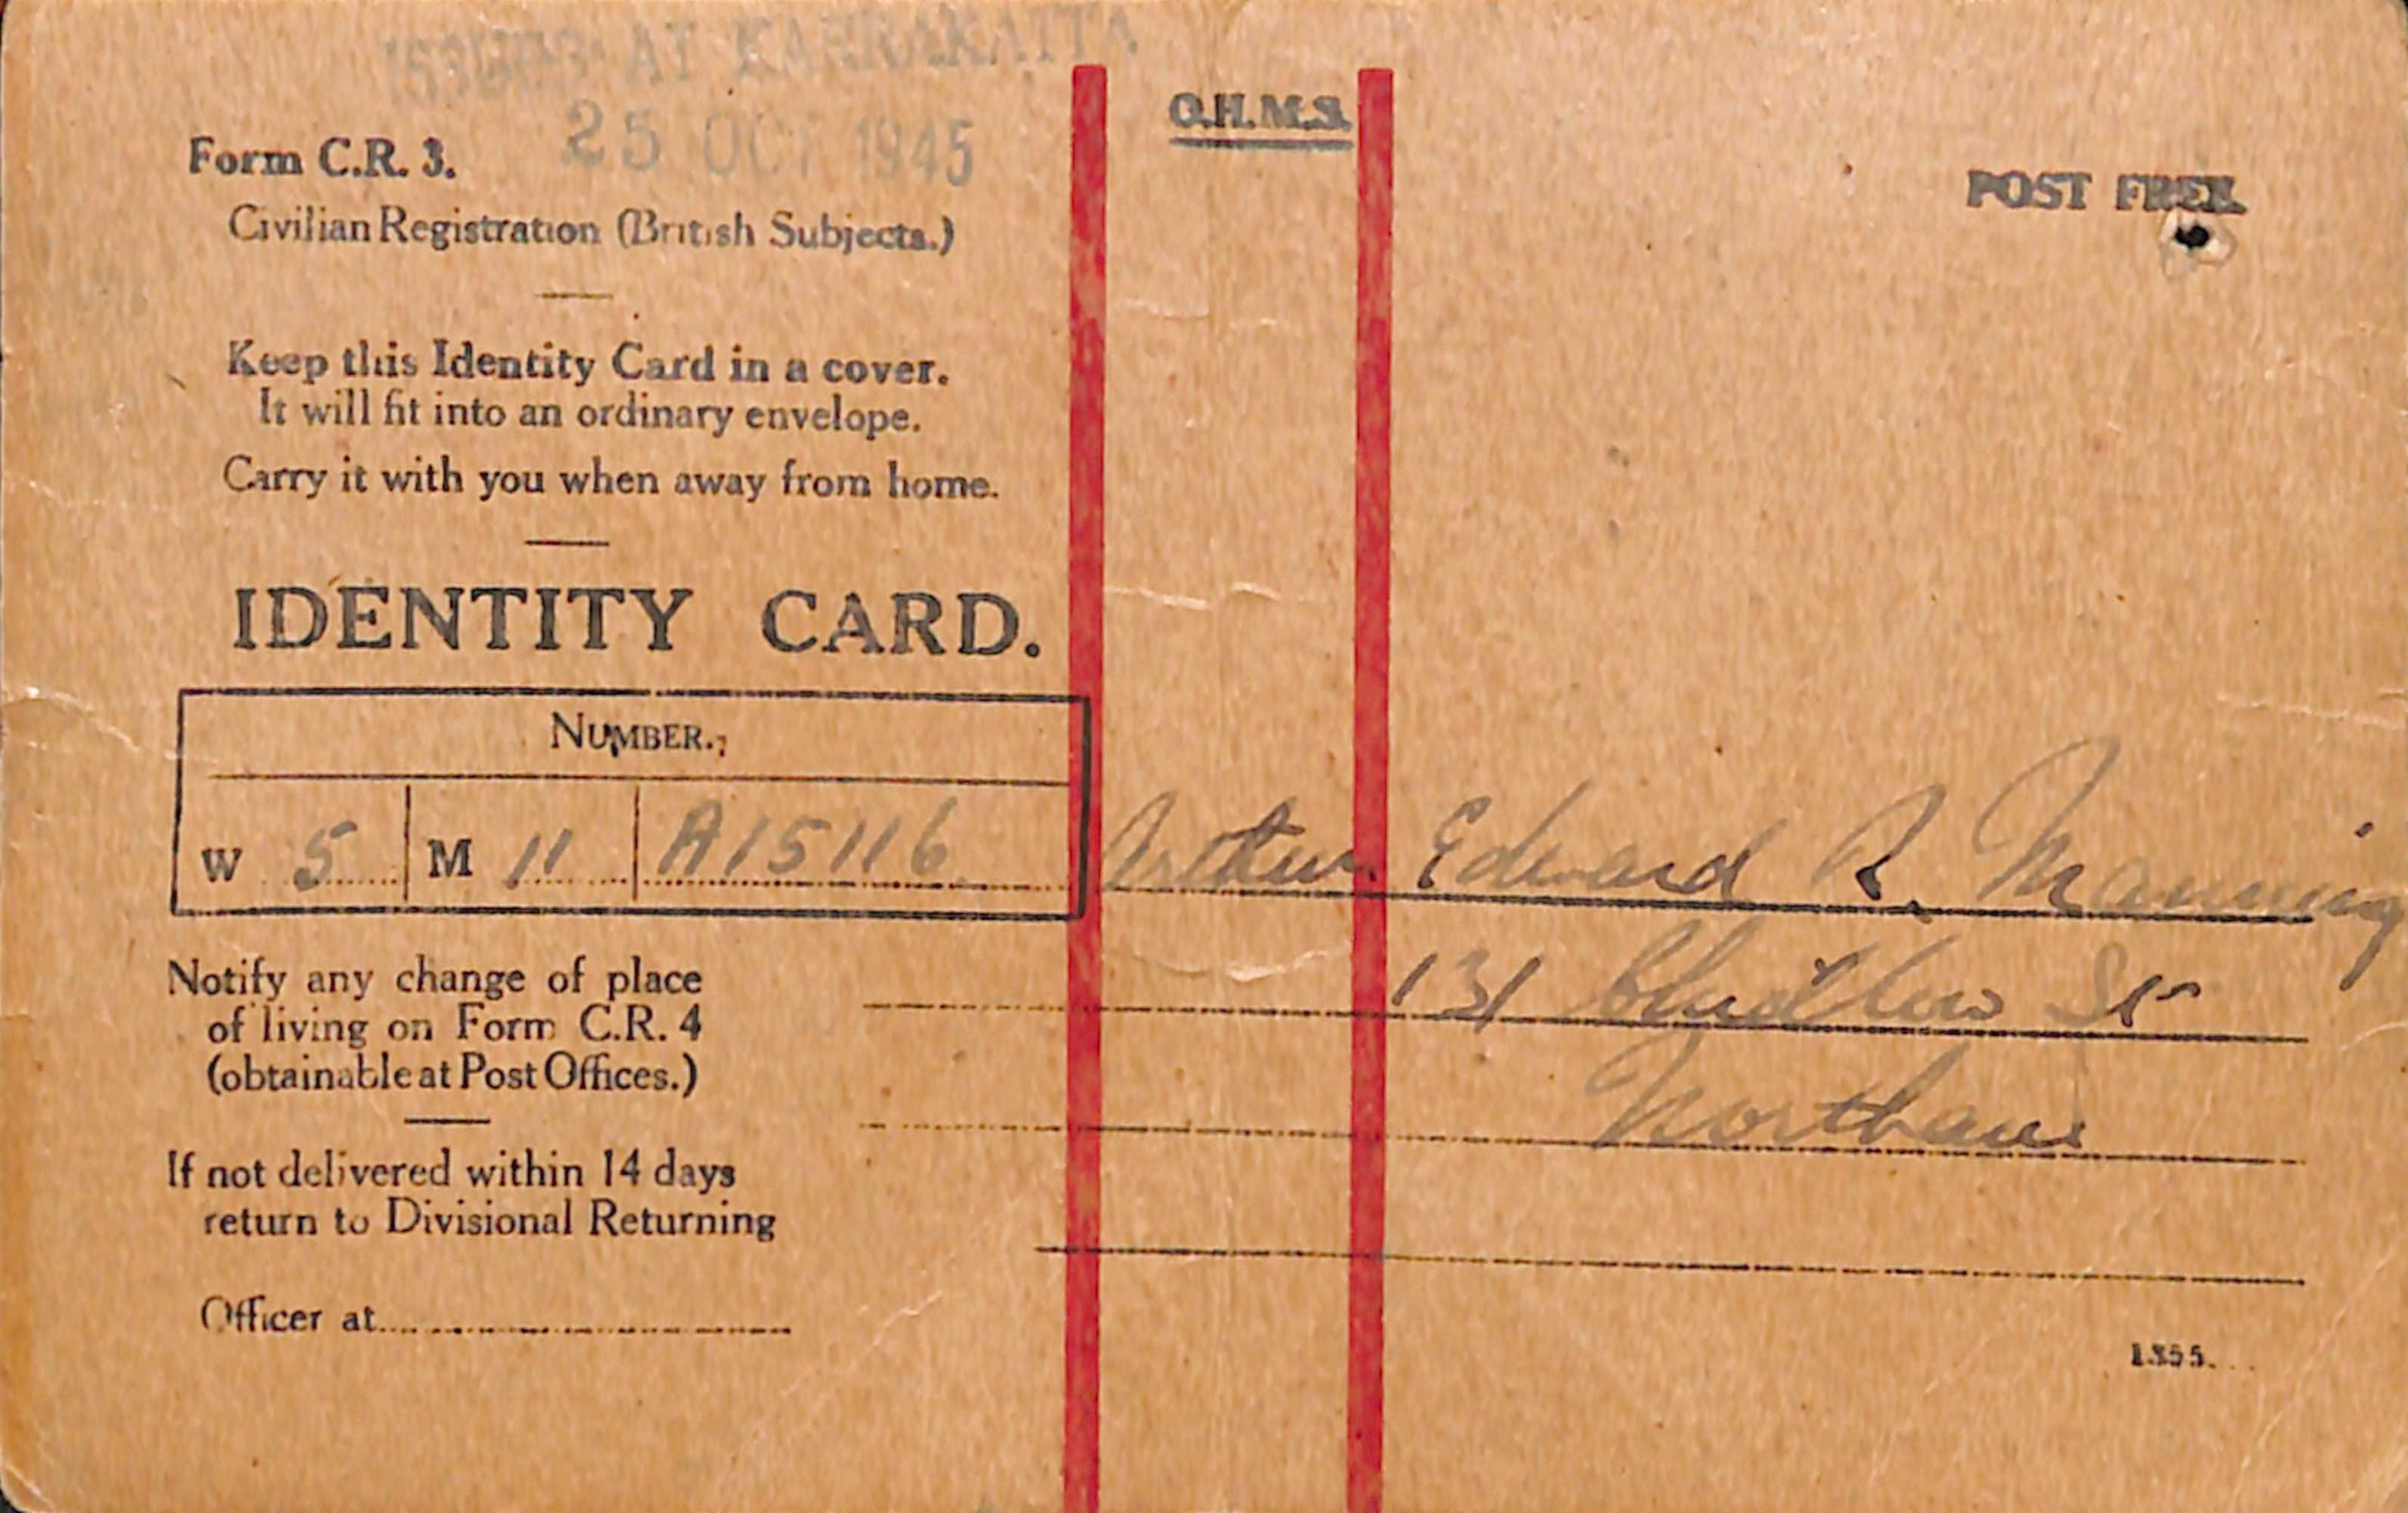 ISSUED AT KARRAKATTA
25 OCT 1945
O.H.M.S.
Form C.R. 3.
POST FREE.
Civilian Registration (British Subjects.)
Keep this Identity Card in a cover.
It will fit into an ordinary envelope.
Carry it with you when away from home.
IDENTITY CARD.
NUMBER.
W 5 M 11 A15116
Arthur Edward R. Manning
131 Chidlow St
Northam
Notify any change of place
of living on Form C.R. 4
(obtainable at Post Offices.)
If not delivered within 14 days
return to Divisional Returning
Officer at
1355.